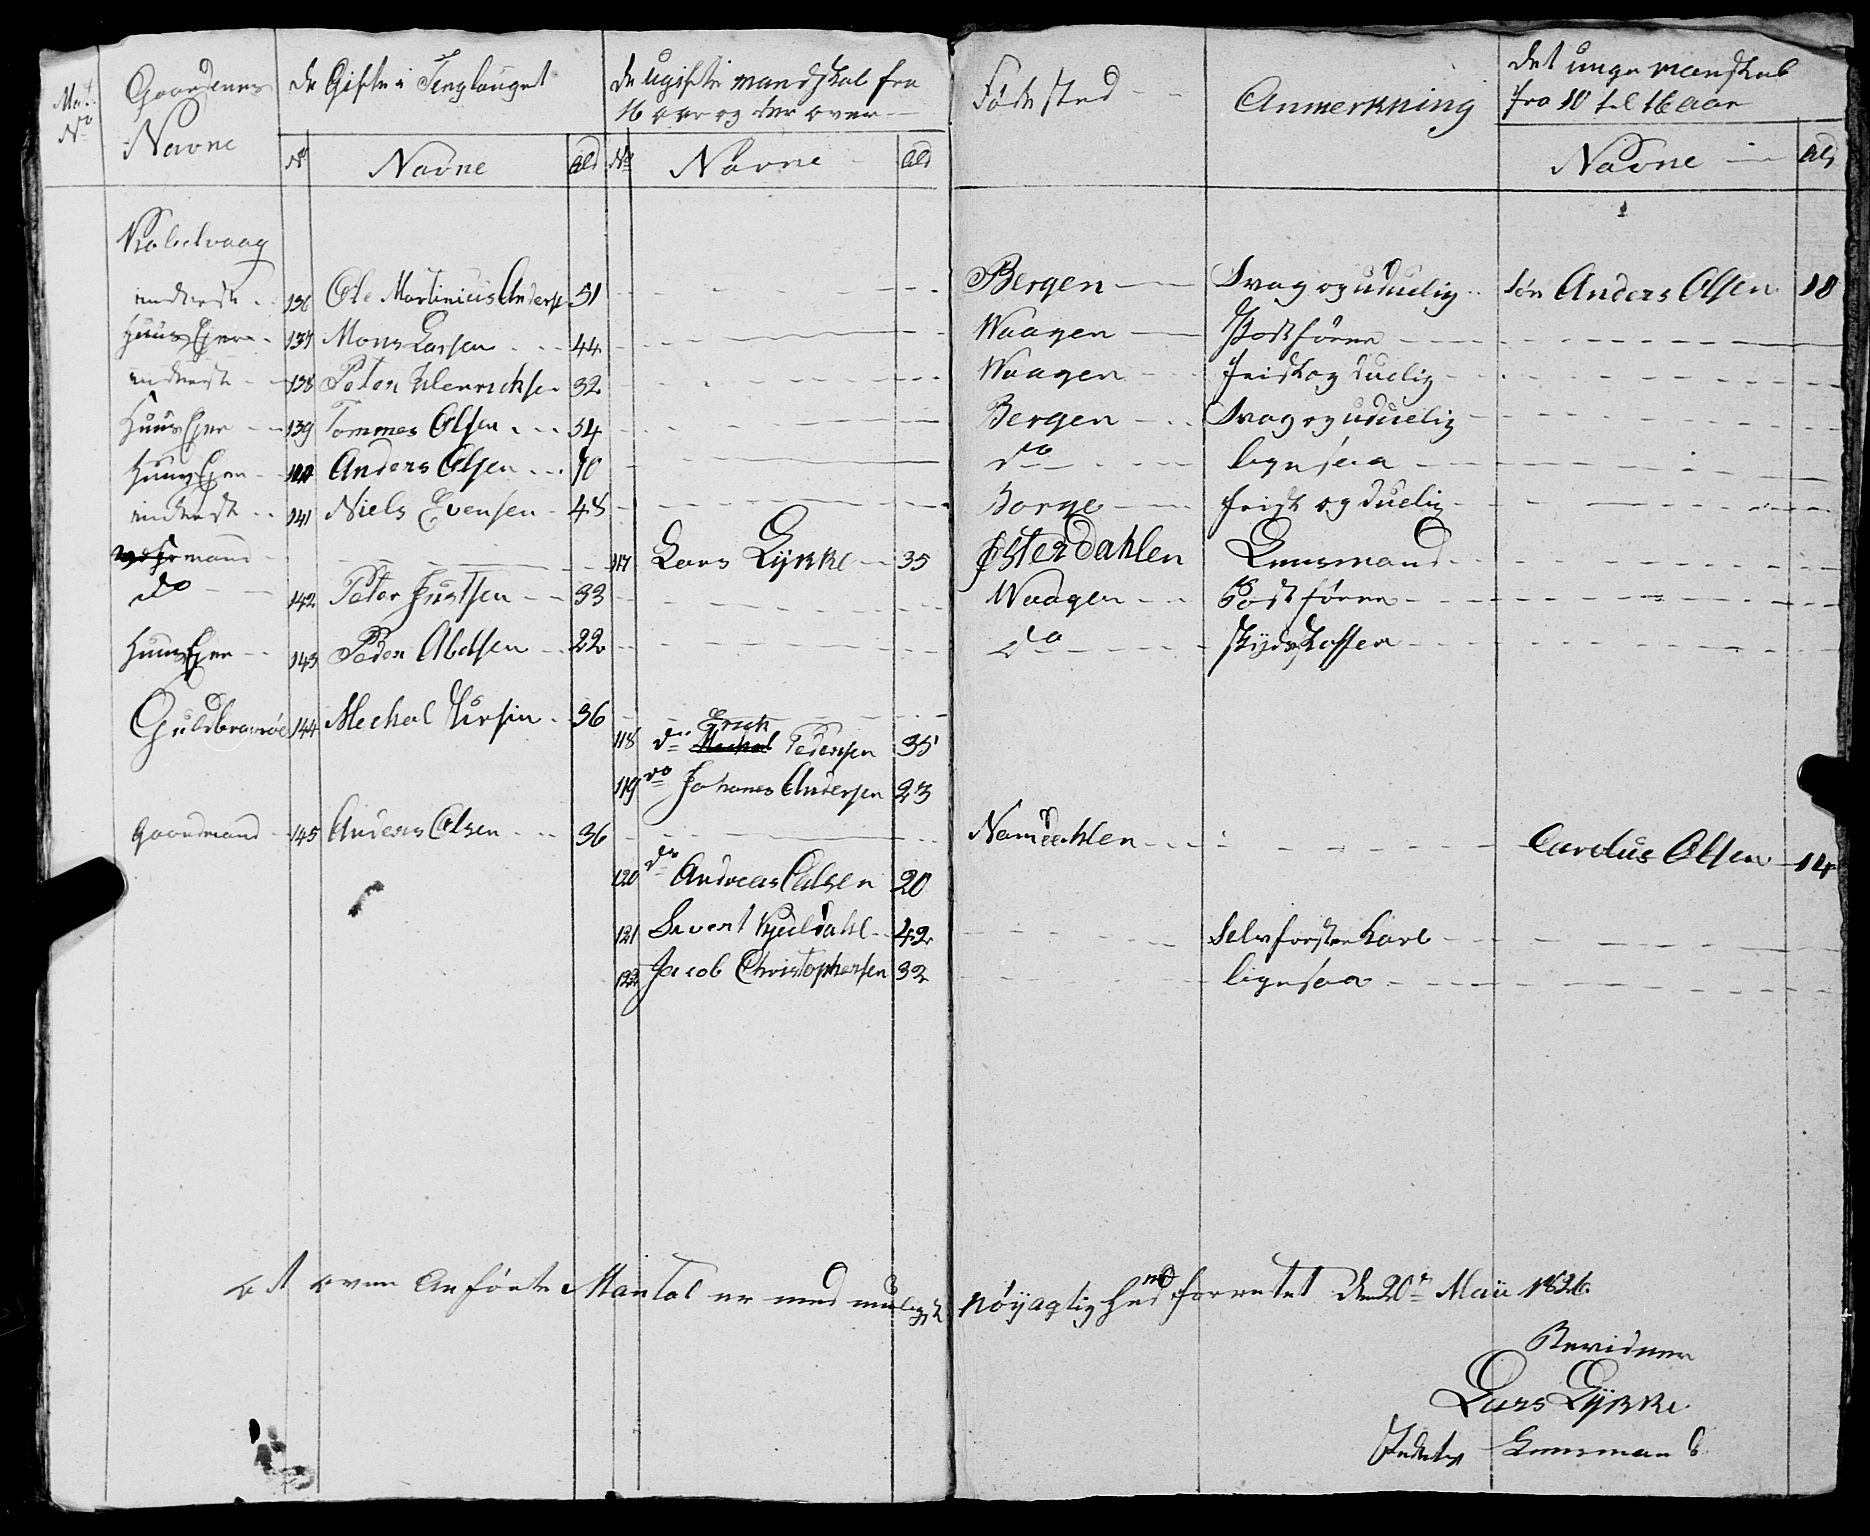 Mat. No Gaardenes Navne De Gifte i Tinglauget De ugifte mandskab fra 16 aar og der over Fødested Anmerkning Det unge manskab fra 10 til 16 aar
No Navne Ald No Navne Ald Navne Ald
Kabelvaag
inderst 136 Ole Martinius Anders 51 Bergen Svag og uduelig søn Anders Olsen 10
Huus Ejer 137 Mons Larsen 44 Waagen Postfører
inderst 138 Peter Henrichsen 32 Waagen frisk og duelig
Huus Ejer 139 Tommes Olsen 54 Bergen Svag og uduelig
Huus Ejer 140 Anders Olsen 70 do ligesaa
inderst 141 Niels Evensen 48 Borge frisk og duelig
mand 117 Lars Lykke 35 Østerdahlen Lensmand
do 142 Peter Justsen 33 Waagen Postfører
Huus Ejer 143 Peder Abelsen 22 do Skydsskaffer
Guldbrandsøe 144 Mechal Ursin 36
Erich
118 dr Mechal Pedersen 35
119 do Johanes Andersen 23
Gaardmand 145 Anders Olsen 36 Namdahlen Carolus Olsen 14
120 dr Andreas Olsen 20
121 Sivert Kjeldahl 42 Selvforster Karl
122 Jacob Christophersen 32 ligesaa
at oven Anførte Mantal er med muligst nøyagtighed forrettet den 20de Maii 1826.
Revideer
Lars Lykke
Lensmand